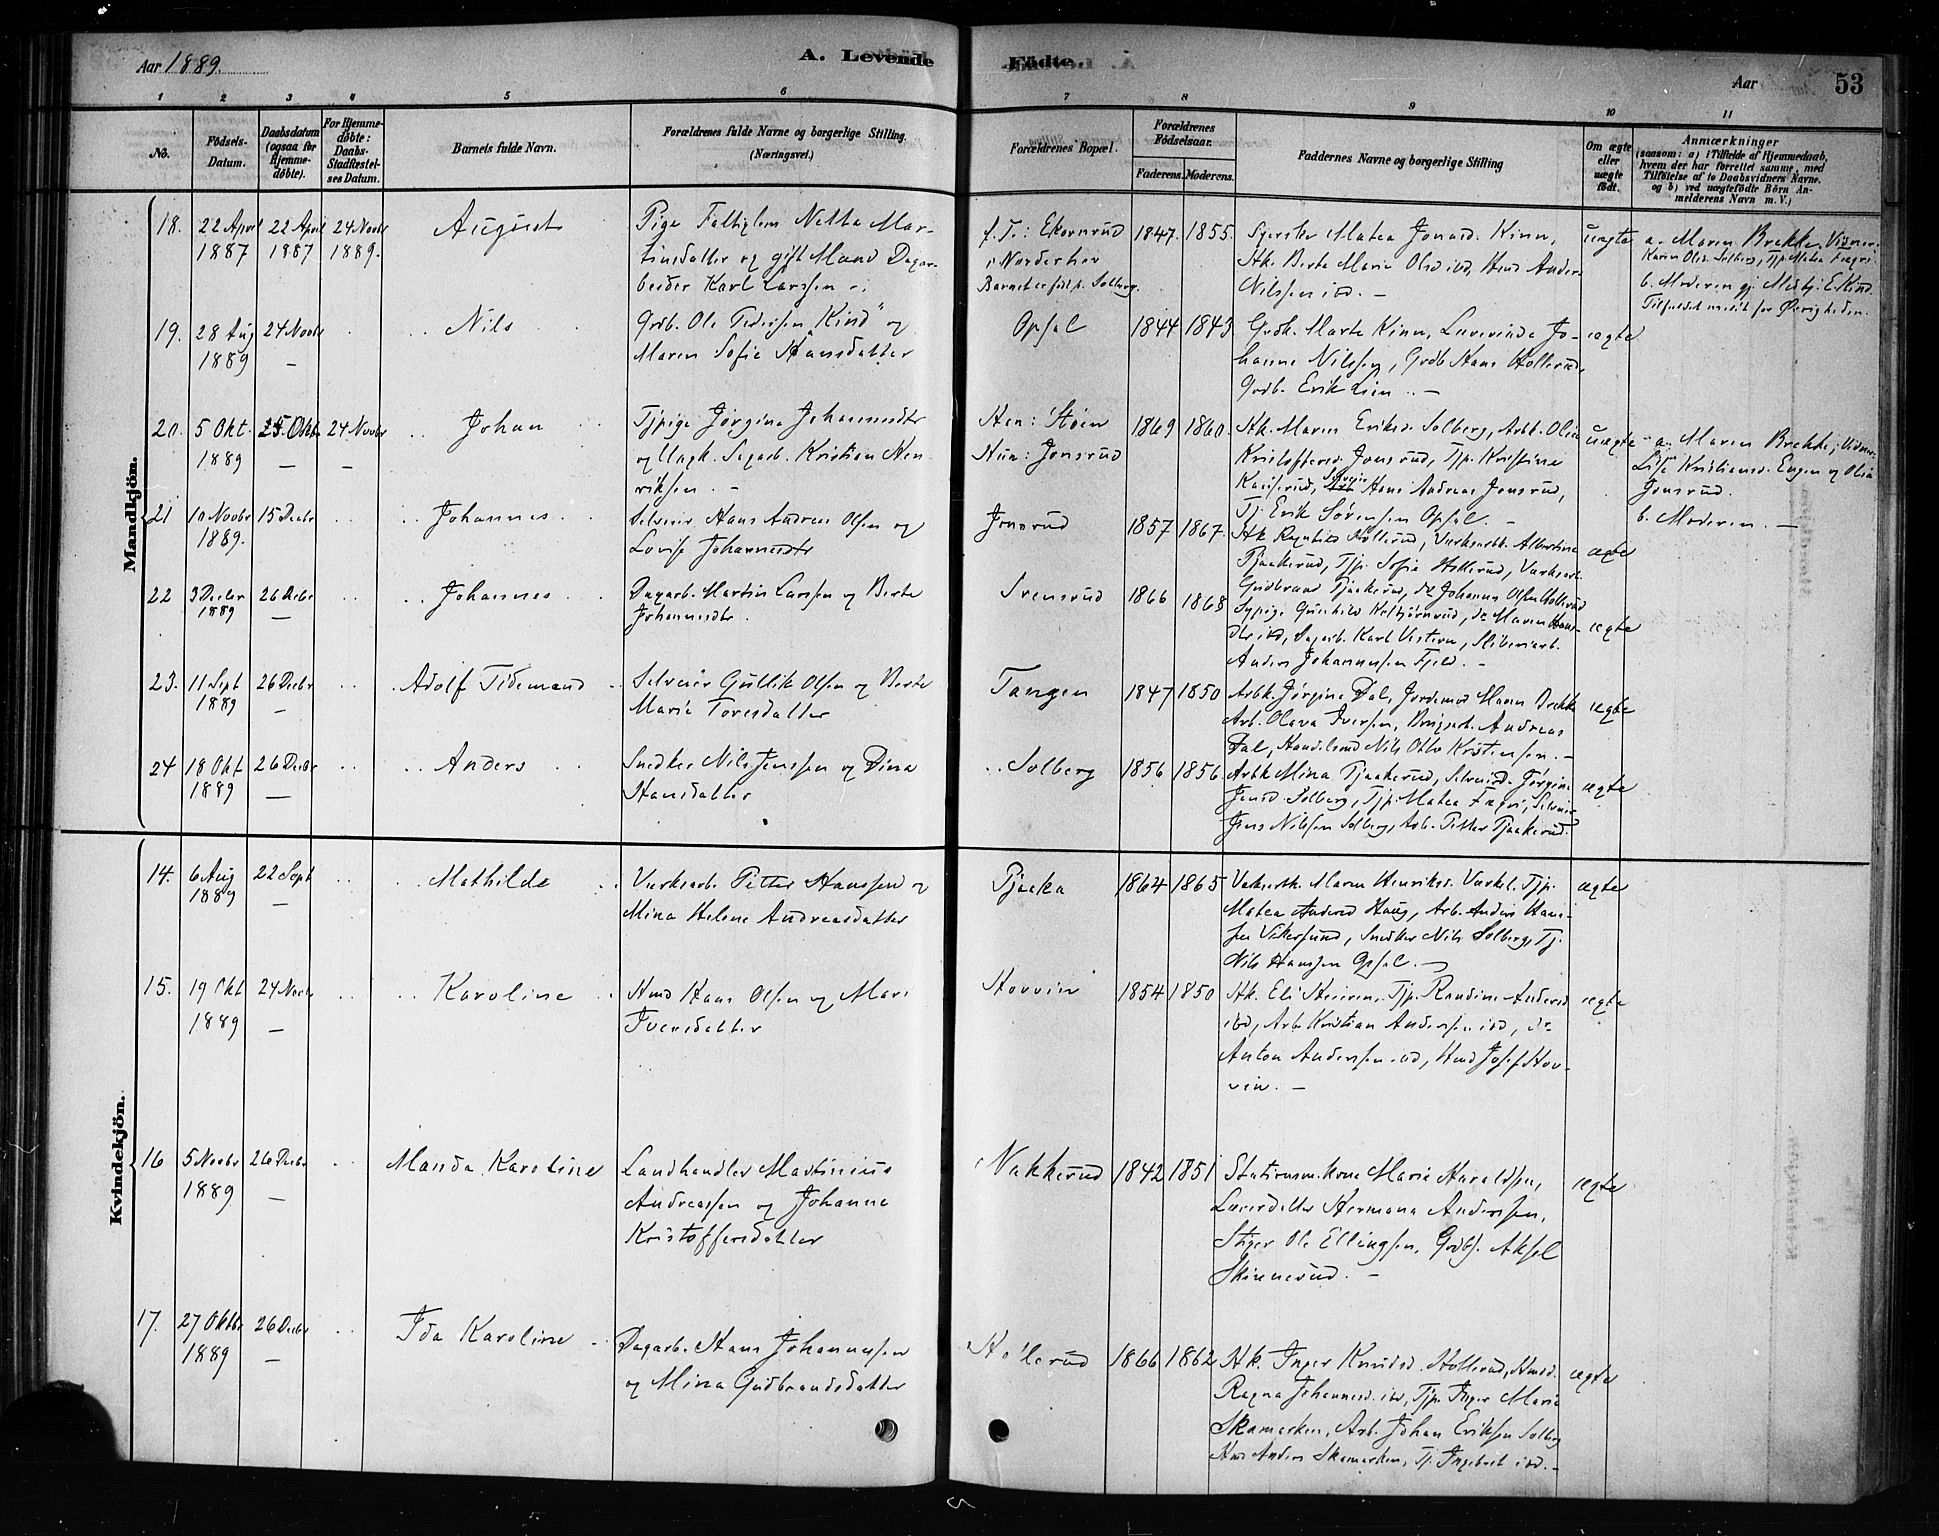 Aar 1889.
A. Levende
Födte.
Aar
53
1 2 3 4 5 6 7 8 9 10 11
No.
Födsels-
Datum.
Daabsdatum
(ogsaa for
Hjemme-
døbte).
For Hjemme-
døbte:
Daabs-
Stadfæstel-
ses Datum.
Barnets fulde Navn.
Forældrenes fulde Navne og borgerlige Stilling.
(Næringsvei.)
Forældrenes Bopæl.
Forældrenes
Födselsaar.
Faderens. Moderens.
Faddernes Navne og borgerlige Stilling
Om ægte
eller
uægte
født.
Anmærkninger
(saasom: a) i Tilfælde af Hjemmedaab,
hvem der har forrettet samme, med
Tilføielse af to Daabsvidners Navne.
og b) ved uægtefødte Börn An-
melderens Navn m. V.)
Mandkjön.
18. 22 April 1887 22 April 1887 24 Novbr 1889. August
Pige Netta Mar-
tinsdatter og gift Mand Dagar-
beider Karl Larssen
f. T.: Ekornrud
i Norderhov
Barnet er født p. Solberg
1847. 1855.
Matea Jonasd. Kinn,
Hk. Berte Marie Olsd ibd, Hmd Anders
Nilssen ibd. –
uægte
a. Maren Brekke, Vidner:
Karen Olsd. Solberg, Tjp. Matea Fægri
b. Moderen
19. 28 Aug 1889 24 Novbr – Nils
Grdb. Ole Pedersen "Kind" og
Maren Sofie Hansdatter
Opsal 1844 1843
Grdk. Marte Kinn, Jo-
hanne Nilssen, Grdb Hans Hollerud,
Grdb. Erik Lien. –
ægte
20. 5 Okt. 1889 25 Okt. – 24 Novbr – Johan
Tjpige Jørgine Johannesdtr
og Ungk. Sagarb. Kristian Hen-
riksen. –
Hen: Støen
Hun: Jonsrud
1869 1860.
Hk. Maren Eriksd. Solberg, Arbk. Olia
Kristoffersd. Jonsrud, Tjp. Kristine
Hans Andreas Jonsrud,
Tj. Erik Sørensen Opsal. –
uægte
a. Maren Brekke, Vidner:
Lise Kristiansd. Engen og Olia
Jonsrud.
b. Moderen. –
21 10 Novbr 1889. 15 Decbr Johannes
Selveier Hans Andreas Olsen og
Lovise Johannesdtr
Jonsrud 1857 1867.
Hk Ragnhild Hollerud, Værksarbk. Albertine
Tjaakerud, Tjp. Sofie Hollerud, Værksarb.
Gudbrand Tjaakerud, do Johannes Olsen Hollerud
ægte
22 3 Decbr 1889 26 Decbr – Johannes
Dagarb. Martin Larssen og Berte
Johannesdtr.
Svensrud 1866 1868
Sypige Gunhild Ketbjørnrud, do Maren Hans-
dtr ibd, Sagarb. Karl Vestern, Sliberiarb.
Anders Johannessen Fjeld. –
ægte
23. 11 Sept 1889 26 Decbr – Adolf Tidemand
Selveier Gullik Olsen og Berte
Marie Toresdatter
Tangen 1847 1850
Arbk. Jørgine Dal, Jordemod Maren Brekke
Arb. Olava Iversen, Andreas
Dal, Handelsmd Nils Otto Kristensen. –
ægte
24 18 Okt 1889 26 Decbr – Anders
Snedker Nils Jenssen og Dina
Hansdatter
Solberg 1856 1856.
Arbk Mina Tjaakerud, Jørgine
Jensd. Solberg, Tjp. Matea Fægri, Selveier
Jens Nilssen Solberg, Arb. Petter Tjaakerud.
ægte
Kvindekjön.
14. 6 Aug 1889 22 Sept – Mathilde
Værksarb. Petter Hanssen og
Mina Helene Andreasdatter
Tjaaka 1864 1865
Maren Henriksd. Tjp.
Matea Andersd Haug, Arb. Anders Han-
sen Vikersund, Snedker Nils Solberg, Tj.
Nils Hanssen Opsal. –
ægte
15. 19 Okt 1889 24 Novbr – Karoline
Hmd Hans Olsen og Mari
Iversdatter
Hovvin 1854 1850
Hk. Eli Tjp. Randine Andersd
ibd, Arb Kristian Andersen ibd, do
Anton Anderssen ibd, Hmd Josef Hov-
vin. –
ægte
16 5 Novbr 1889 26 Decbr – Manda Karoline
Landhandler Martinius
Andreassen og Johanne
Kristoffersdatter
Nakkerud 1842 1851
Stationsm.kone Marie Haraldsen,
Hermana Anderssen,
Stiger Ole Ellingsen, Grdbs. Aksel
Skinnerud. –
ægte
17. 27 Oktbr 1889 26 Decbr – Ida Karoline
Dagarb. Hans Johannessen
og Mina Gudbrandsdatter
Hollerud 1866 1862
Hk. Inger Knudsd. Hollerud, Hmd.
Ragna Johannesd. ibd, Tjp. Inger Marie
Skamarken, Arb. Johan Eriksen Solberg
Hmd Anders Skamarken, Tj. Ingebret ibd. –
ægte